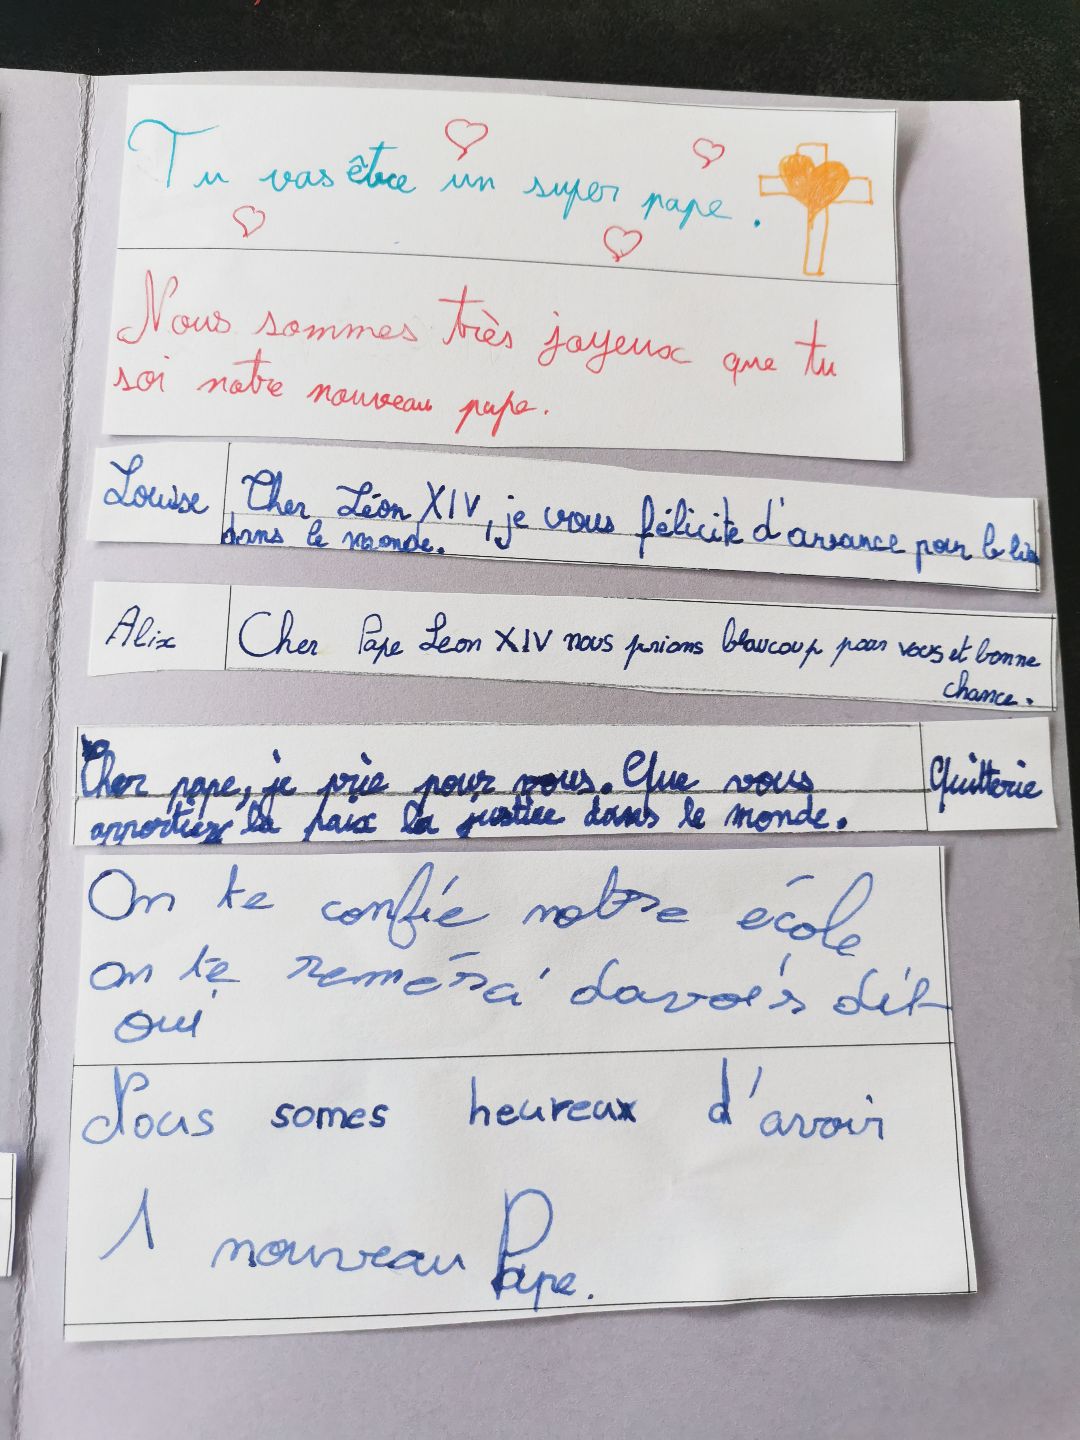 Tu vas être un super pape.
Nous sommes très joyeux que tu
soi notre nouveau pape.
Louise
Cher Léon XIV, je vous félicite d'arvance pour le
dans le monde.
Alix
Cher Pape Leon XIV nous prions beaucoup pour vous et bonne
chance.
Cher pape, je prie pour vous. Que vous
apportiez la paix la justice dans le monde.
Quitterie
On te confié notre école
on te remérsi davoirs dit
oui
Nous somes heureux d'avoir
1 nouveau Pape.